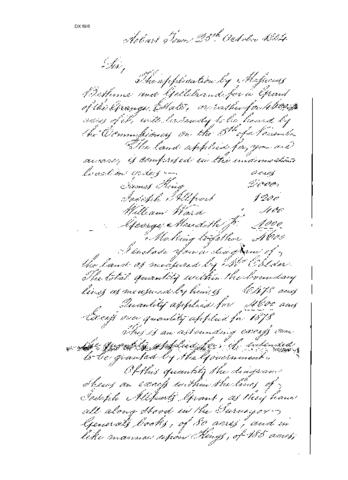 Hobart Town 25th October 1824.
Sir,
The application by Messieurs
Bethune and Gellibrand for a Grant
of the Grange Estate, or rather for 4600
acres of it, will certainly be heard by
the Commissioners on the 8th of November
The land applied for, you are
aware, is comprised in the undermentioned
location orders — acres
James King 2000
Joseph Allport 1200
William Ward 400
George Meredith Jr. 1000
Making together 4600
I enclose you a diagram of
the land as measured by Mr
The total quantity within the boundary
lines as measured by him is 6475 acres
Quantity applied for 4600 acres
Excess over quantity applied for 1875
This is an astounding excess over
the quantity intended
to be granted by the Government.
Of this quantity the diagram
shews an excess within the lines of
Joseph Allports Grant, as they have
all along stood in the Surveyor
Generals books, of 80 acres; and in
like manner upon Kings, of 185 acres;